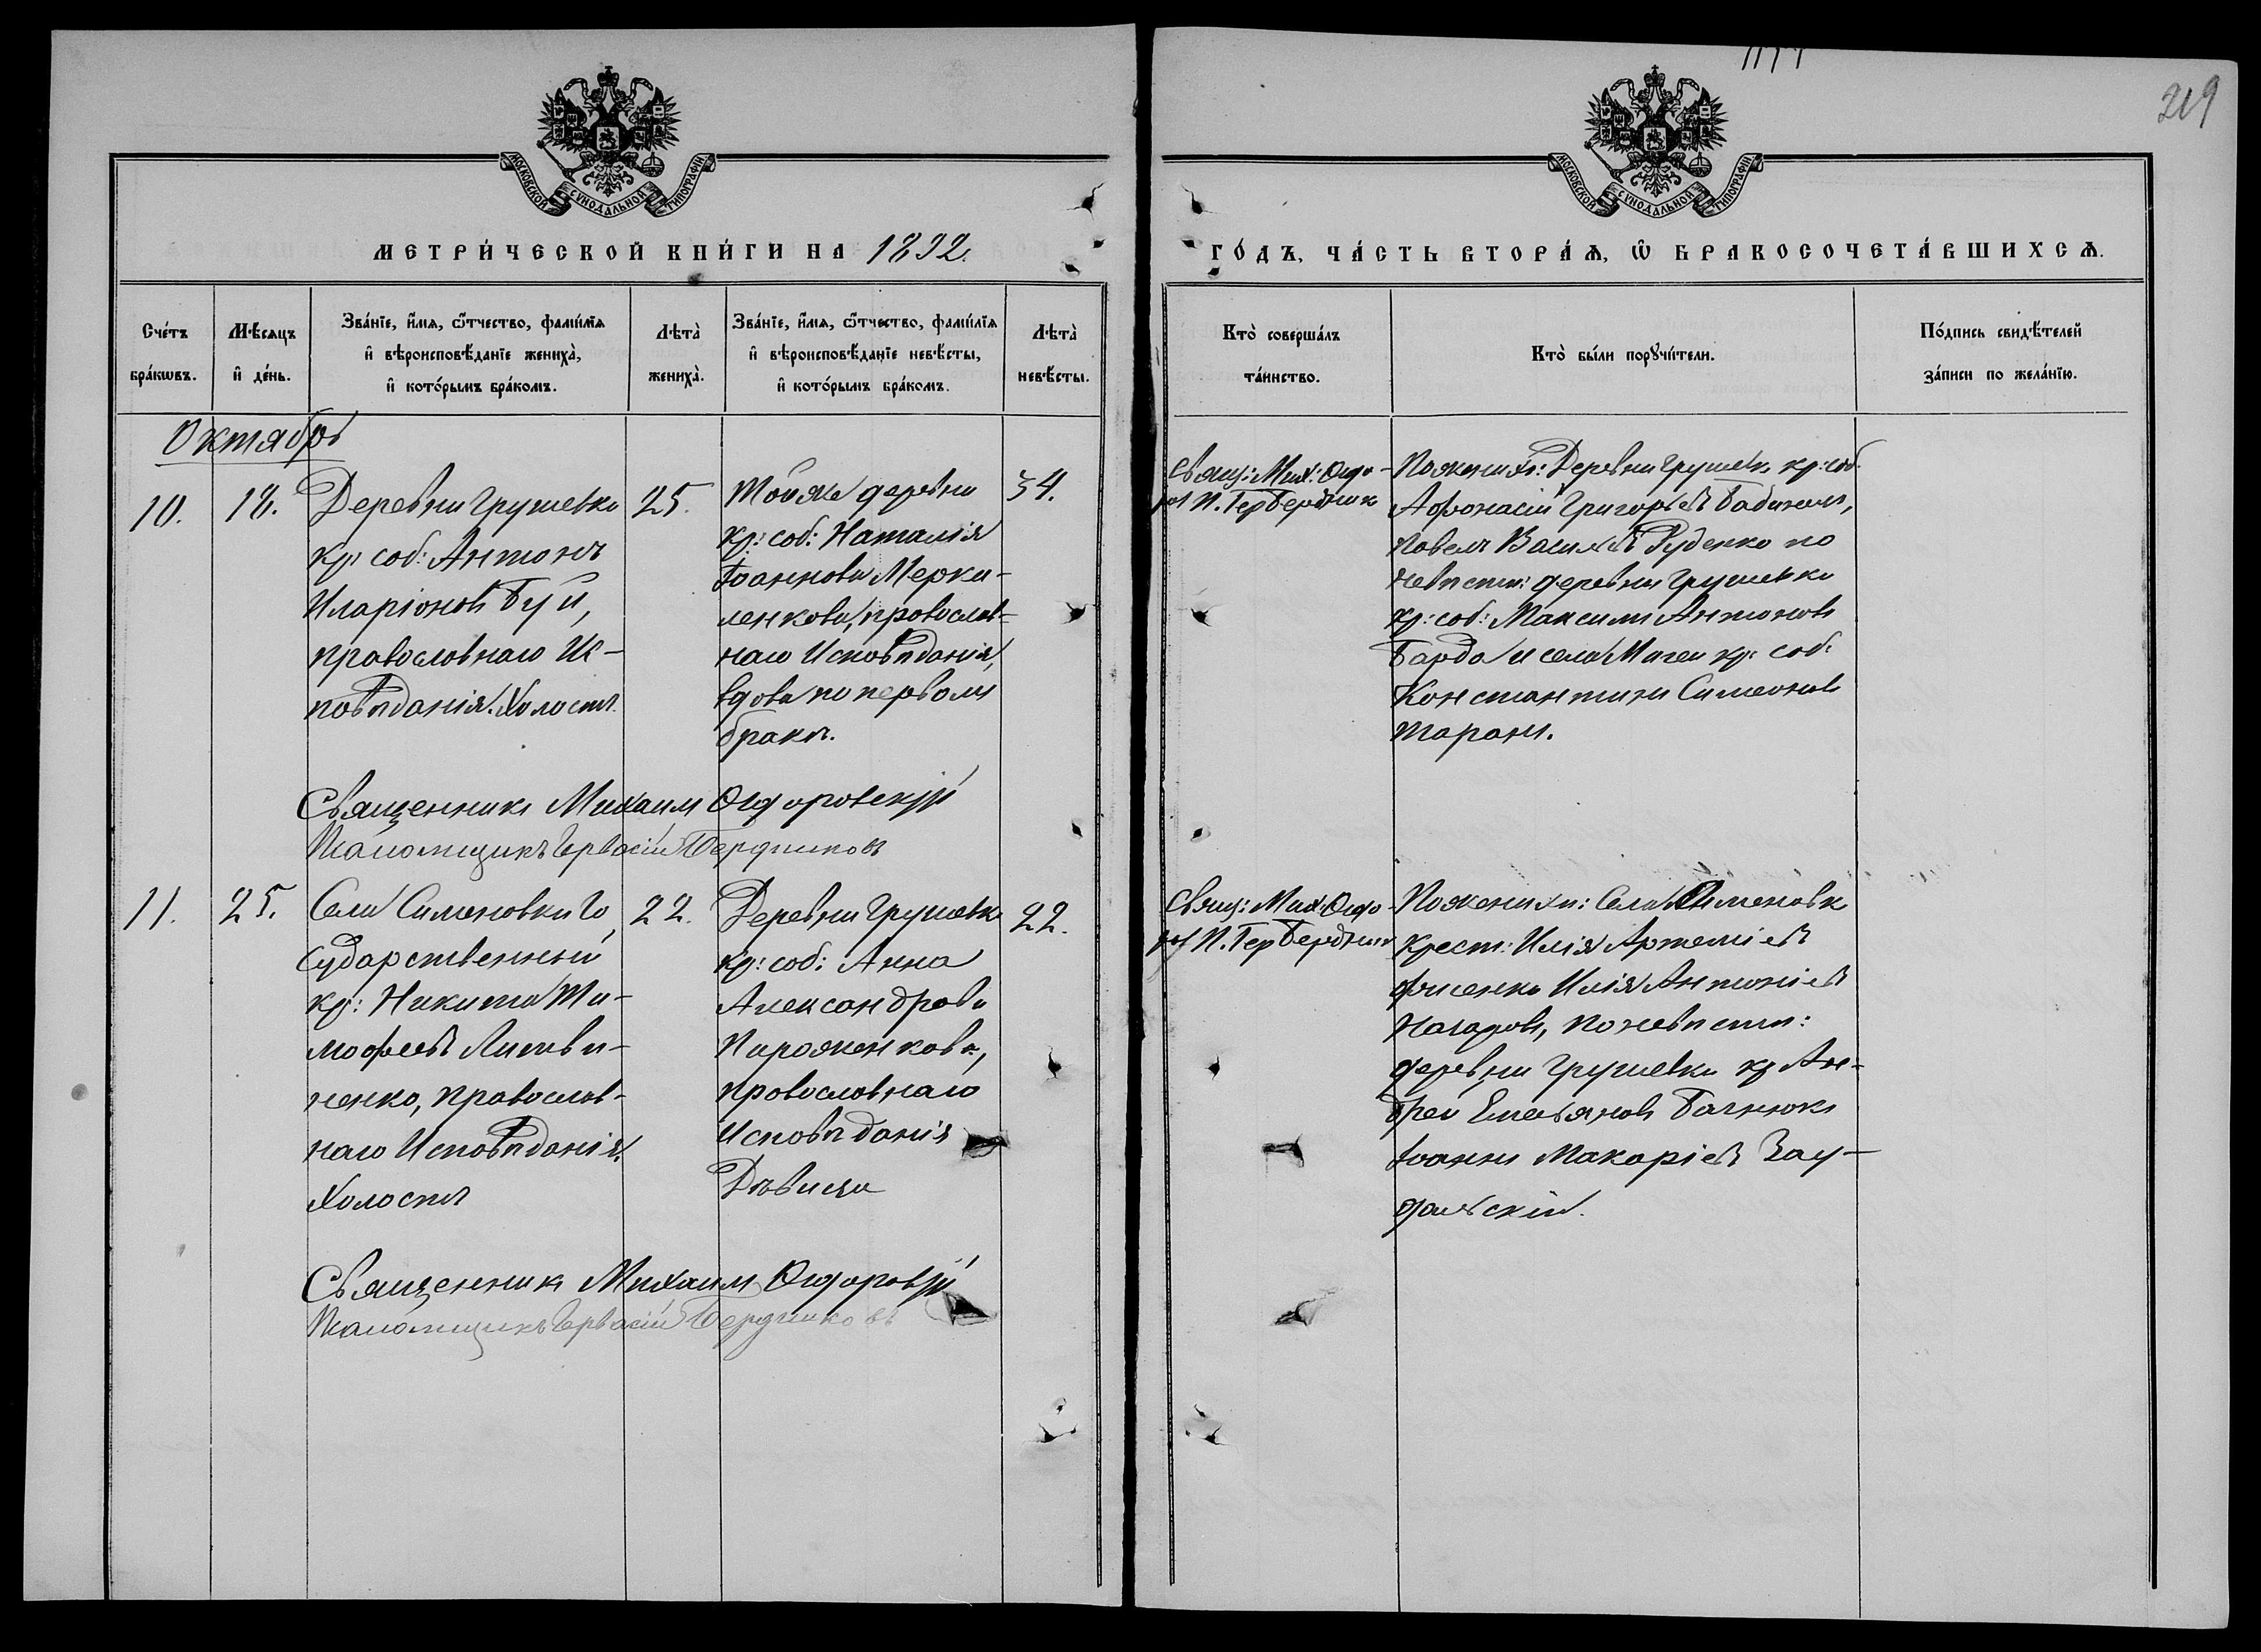 219
МОСКОВСКОЙ СѴНОДАЛЬНОЙ ТИПОГРАФІИ
МОСКОВСКОЙ СѴНОДАЛЬНОЙ ТИПОГРАФІИ
МЕТРИ́ЧЕСКОЙ КНИ́ГИ НА 1892.
ГО́ДЪ, ЧА́СТЬ ВТОРА́Ѧ, Ѡ҆ БРАКОСОЧЕТА́ВШИХСѦ.
Сче́тъ
бра́кѡвъ.
Мѣ́сяцъ
и҆ де́нь.
Зва́нїе, и҆́мѧ, ѻ҆́тчество, фами́лїѧ
и҆ вѣроисповѣ́данїе жениха̀,
и҆ кото́рымъ бра́комъ.
Лѣта̀
жениха̀.
Зва́нїе, и҆́мѧ, ѻ҆́тчество, фами́лїѧ
и҆ вѣроисповѣ́данїе невѣ́сты,
и҆ кото́рымъ бра́комъ.
Лѣта̀
невѣ́сты.
Кто̀ соверша́лъ
та́инство.
Кто̀ бы́ли порꙋчи́тели.
По́дпись свидѣ́телей
за́писи по жела́нїю.
Октябрь
10.
18.
Деревни Грушевки
кр: соб: Антонъ
Иларіоновъ Буй,
православнаго Ис-
повѣданія. Холостъ.
25.
Той же деревни
кр: соб: Наталія
Іоаннова Мерку-
ленкова, православ-
наго Исповѣданія,
вдова по первомъ
бракѣ.
34.
Свящ: Мих: Ѳедо-
ров П. Гер Бердник
По жених: Деревни Грушевк. кр: соб.
Афонасій Григорьевъ Бабичъ,
Павелъ Васильевъ Руденко по
невѣстѣ: деревни Грушевки
кр: соб: Максимъ Антоновъ
Барда и села Мигеи кр: соб:
Константинъ Симеоновъ
Таранъ.
Священникъ Михаилъ Ѳедоровскій
Псаломщикъ Гервасій Бердниковъ
11.
25.
Села Симоновки Го
сударственный
кр: Никита Ти-
мофеевъ Литви-
ненко, православ-
наго Исповѣданія.
Холостъ
22.
Деревни Грушевк
кр: соб: Анна
Александрова
Пироженкова,
православнаго
Исповѣданія
Дѣвица
22.
Свящ: Мих: Ѳедо-
ров П. Гер Бердник
По женихѣ: Села Симоновк
крест: Илія Артеміевъ
Илія Антоніевъ
по невѣстѣ:
деревни Грушевки кр Ан-
дрей Емельяновъ Бачнюкъ
Іоаннъ Макаріевъ Зау-
дальскій.
Священникъ Михаилъ Ѳедоровскій
Псаломщикъ Гервасій Бердниковъ